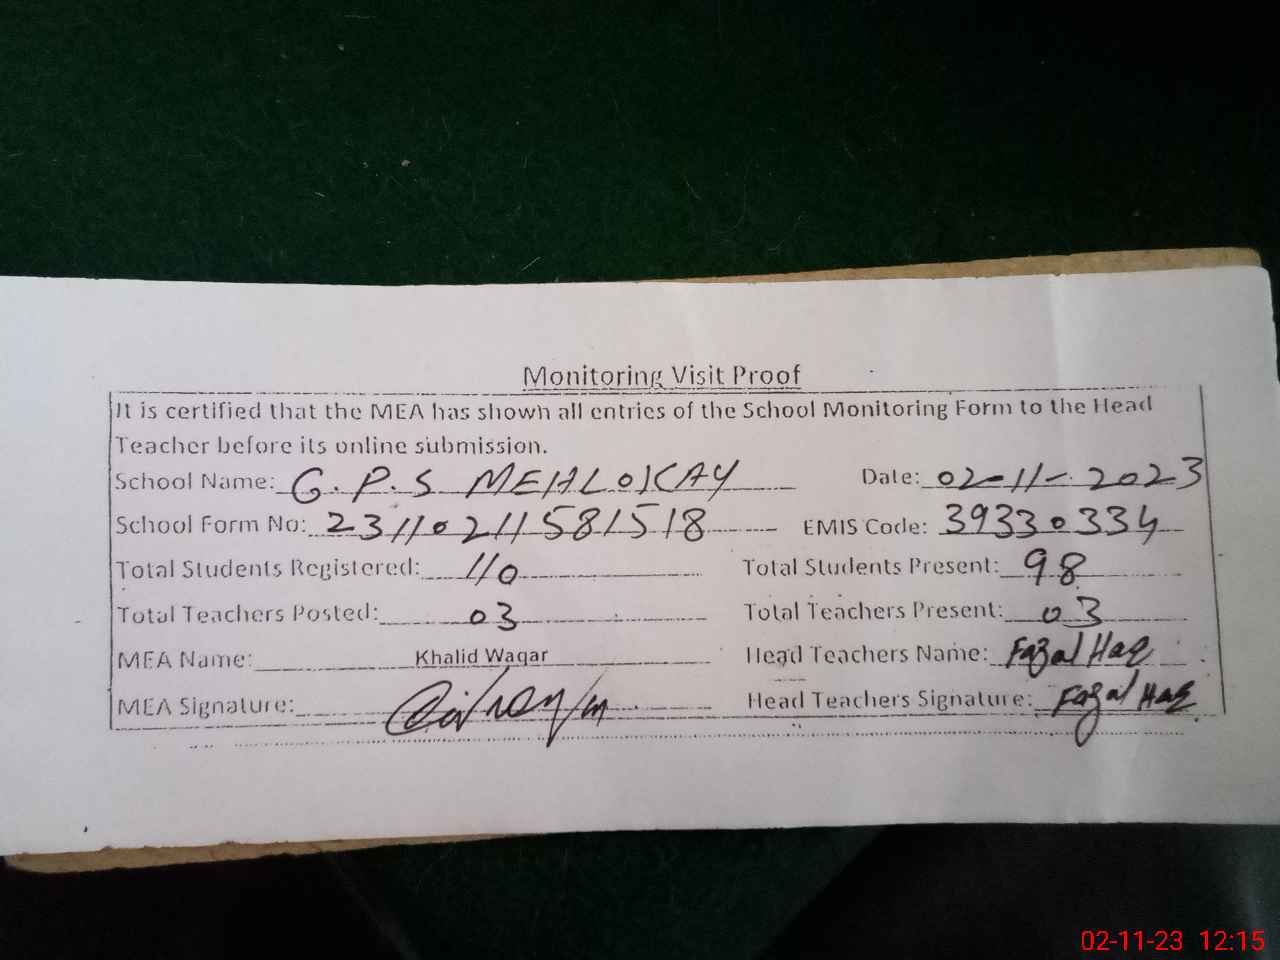 Monitoring Visit Proof
It is certified that the MEA has shown all entries of the School Monitoring Form to the Head
Teacher before its online submission.
School Name: G.P.S MEHLOKAY Date: 02-11-2023
School Form No: 23110211581518 EMIS Code: 39330334
Total Students Registered: 110 Total Students Present: 98
Total Teachers Posted: 03 Total Teachers Present: 03
MEA Name: Khalid Waqar Head Teachers Name: Fazal Haq
MEA Signature: Head Teachers Signature: Fazal Haq
02-11-23 12:15